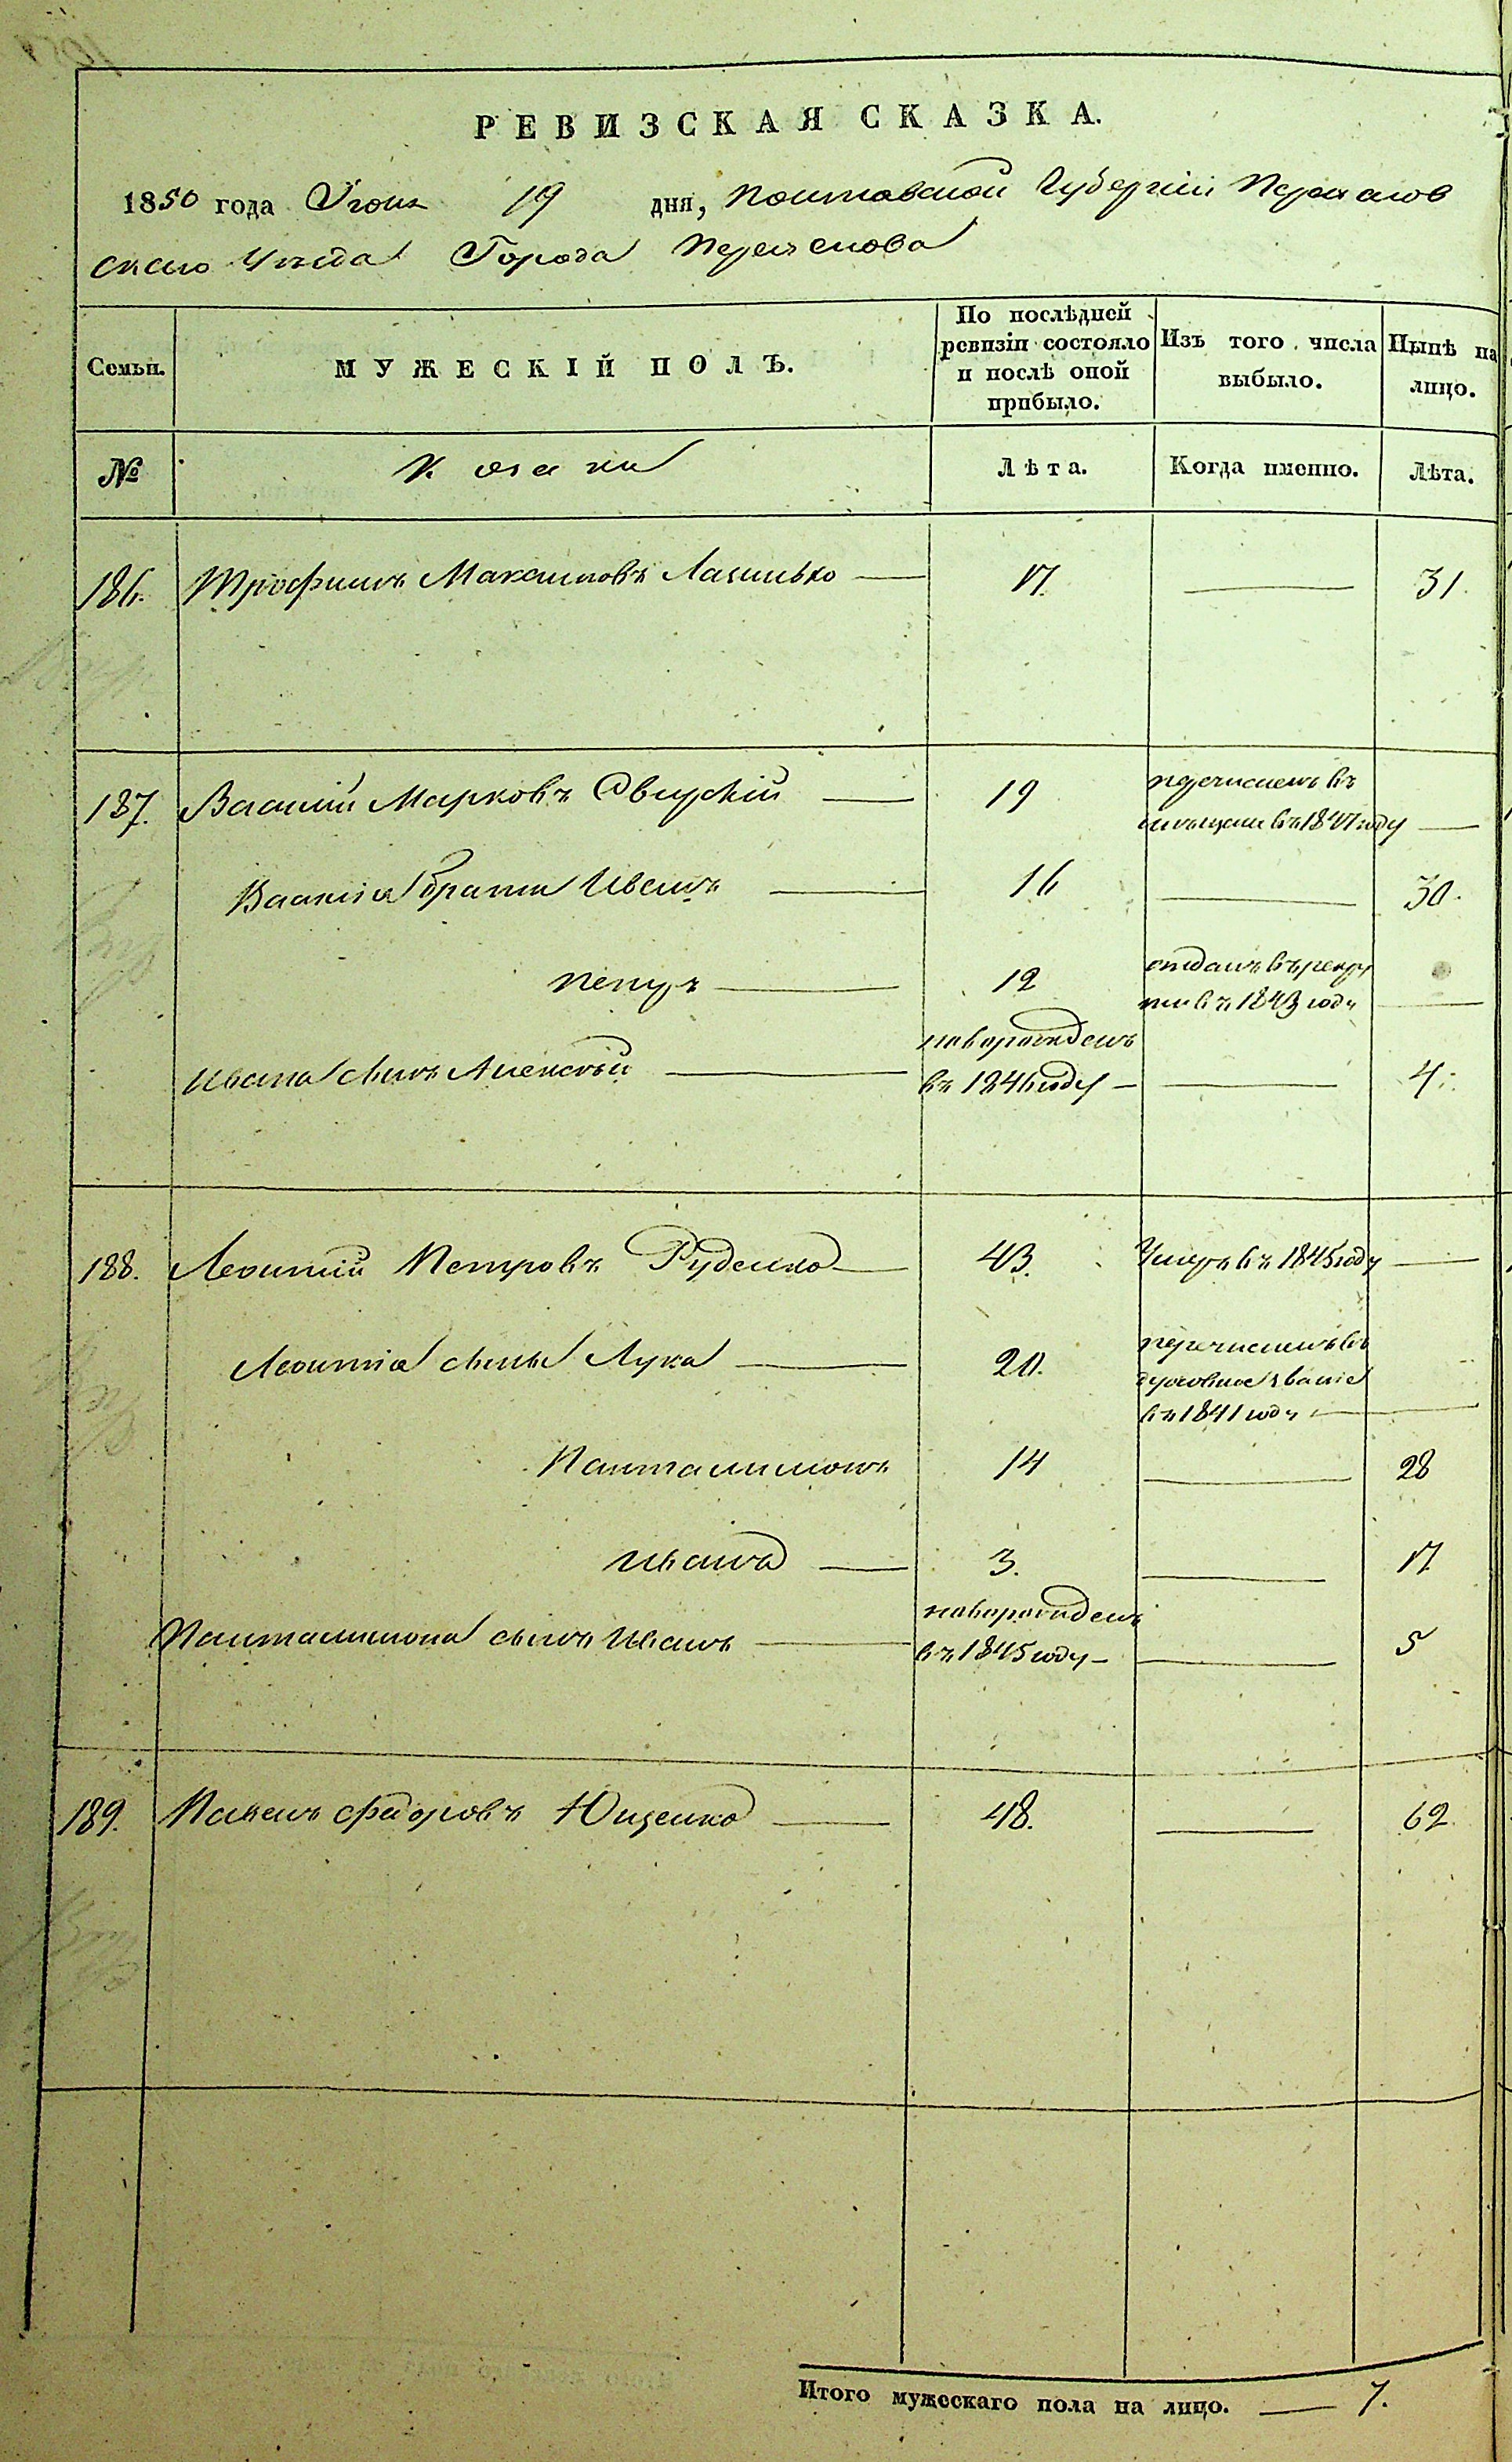 РЕВИЗСКАЯ СКАЗКА.
1850 года Июня 19 дня, Полтавской Губерніи Переяслов
скаго Уезда Города Переяслова
Семьи.
МУЖЕСКІЙ ПОЛЪ.
По послѣдней
ревизіи состояло
и послѣ оной
прибыло.
Изъ того числа
выбыло.
Нынѣ на
лицо.
№
Козаки
Лѣта.
Когда именно.
Лѣта.
186. Трофимъ Максимовъ 17. 31.
187. Василий Марковъ 19 перечисленъ въ
мещане въ 1847 году
Василія братья Иванъ 16 30.
Петръ 12 отданъ въ рекру
ты въ 1843 году
новорожденъ
Ивана сынъ Алексѣй въ 1846 году 4.
188. Леонтій Петровъ Руденко 43. Умеръ въ 1845 году
Леонтія сыны Лука 20. перечисленъ въ
духовное званіе
въ 1841 году
Панталимонъ 14 28
Иванъ 3. 17
новорожденъ
Панталимона сынъ Иванъ въ 1845 году 5
189. Павелъ Федоровъ Ющенко 48. 62
Итого мужескаго пола на лицо. 7.